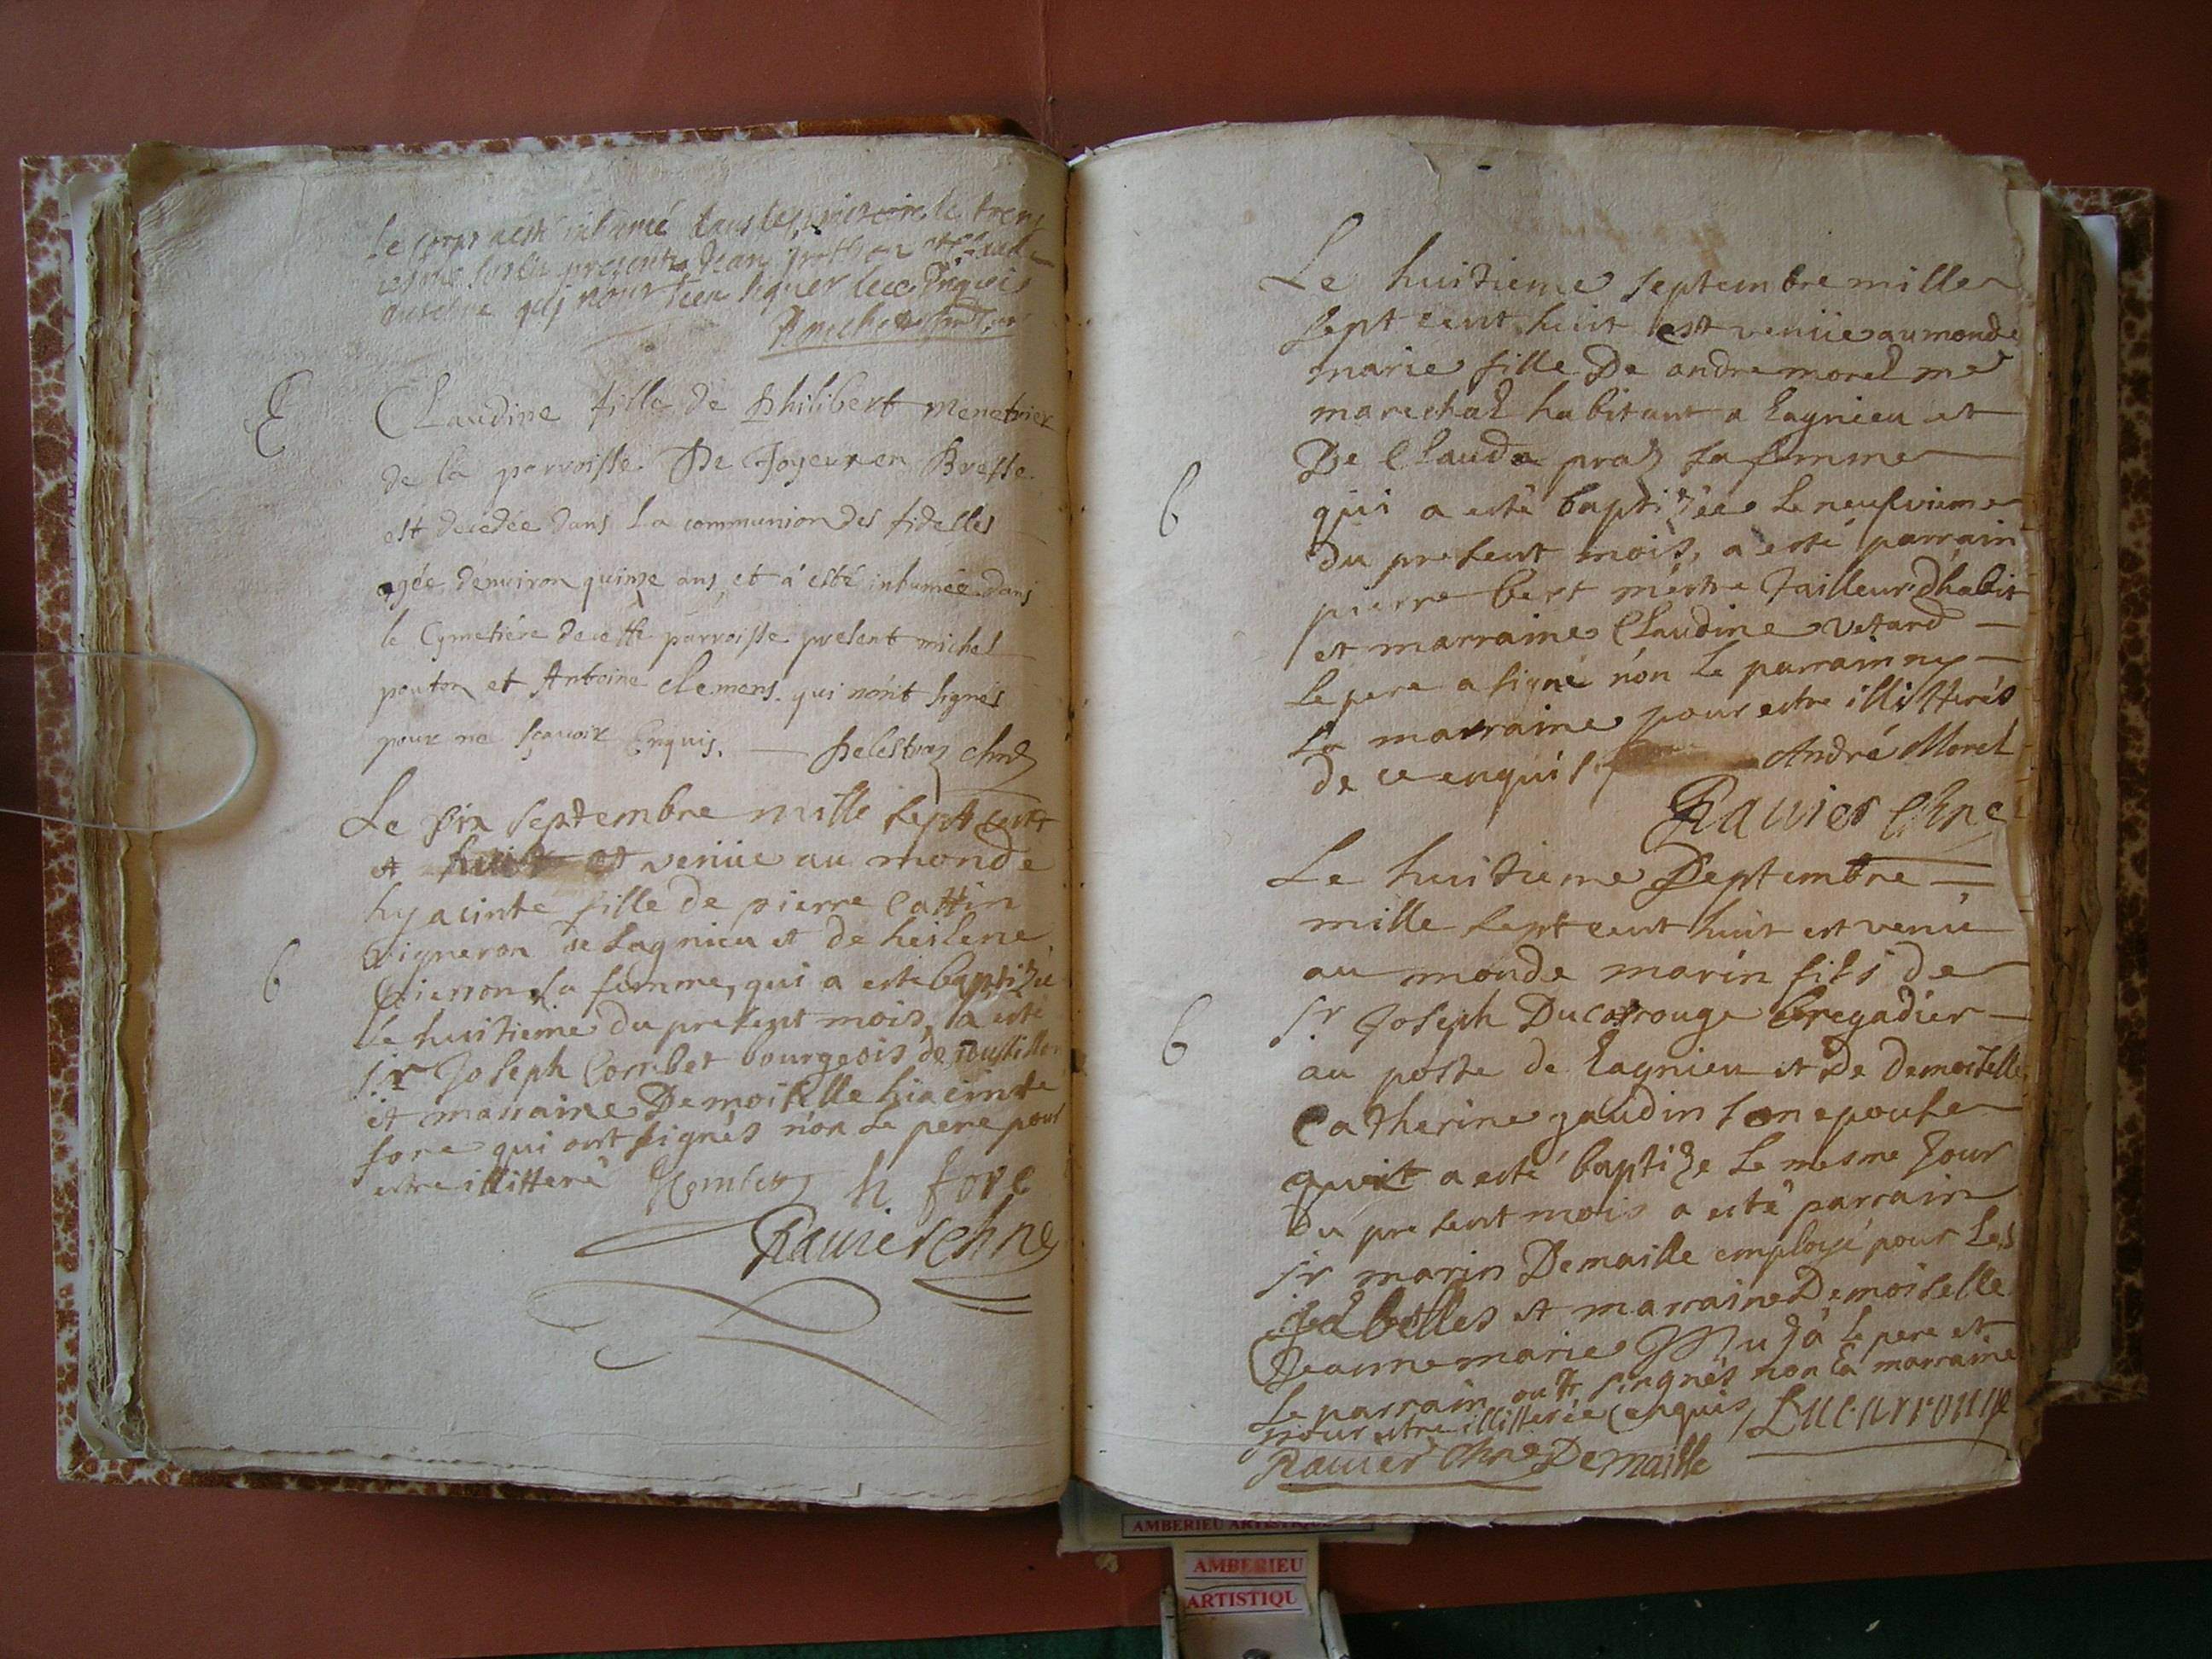 le corps a esté inhumé dans le cimetiere le
presents Jean
signer
E
Claudine fille de Philibert menetrier
de la parroisse De Joyeux en Bresse
est decedée dans La communion des fidelles
agée denuiron quinze ans et a esté inhumée dans
le Cymetiére de cette parroisse present michel
pouton et Antoine clemens qui nont signés
pour ne sçauoir Enquis. Delestraz chne
Le six septembre mille sept cent
et huit est venüe au monde
hyacinte fille de pierre Cattin
vigneron de Lagnieu et de heilene
6
Pierron sa femme, qui a esté baptizée
le huitieme du present mois, a esté
sr Joseph Combet bourgeois de
et marraine Demoiselle hiacinte
fore qui ont signés nón le pere pour
estre illitteré Combet h fore
Rauier chne
Le huitieme septembre mille
sept cent huit est venüe au monde
marie fille De andre morel me
marechal habitant a Lagnieu et
De Clauda praz sa femme
6
qui a esté baptizée le neufvieme
du present mois, a esté parrain
pierre bert mestre Tailleur dhabit
et marraine Claudine vetard
le pere a signé nón le parrain ny
la marraine pour estre illitterés
de ce enquis. André Morel
Rauier Chne
Le huitieme Septembre
mille sept cent huit est venu
au monde marin fils de
6
sr Joseph Ducarrouge bregadier
au poste de Lagnieu et De Demoiselle
Catherine gaudin son epouse
qui a esté baptize le mesme Jour
du present mois a esté parrain
sr marin Demaille employé pour les
gabelles et marraine Demoiselle
Jeanne marie le pere et
le parrain ont singnés non la marraine
pour estre illitterée enquis Ducarrouge
Rauier Chne Demaille
AMBERIEU ARTISTIQU
AMBERIEU
ARTISTIQU